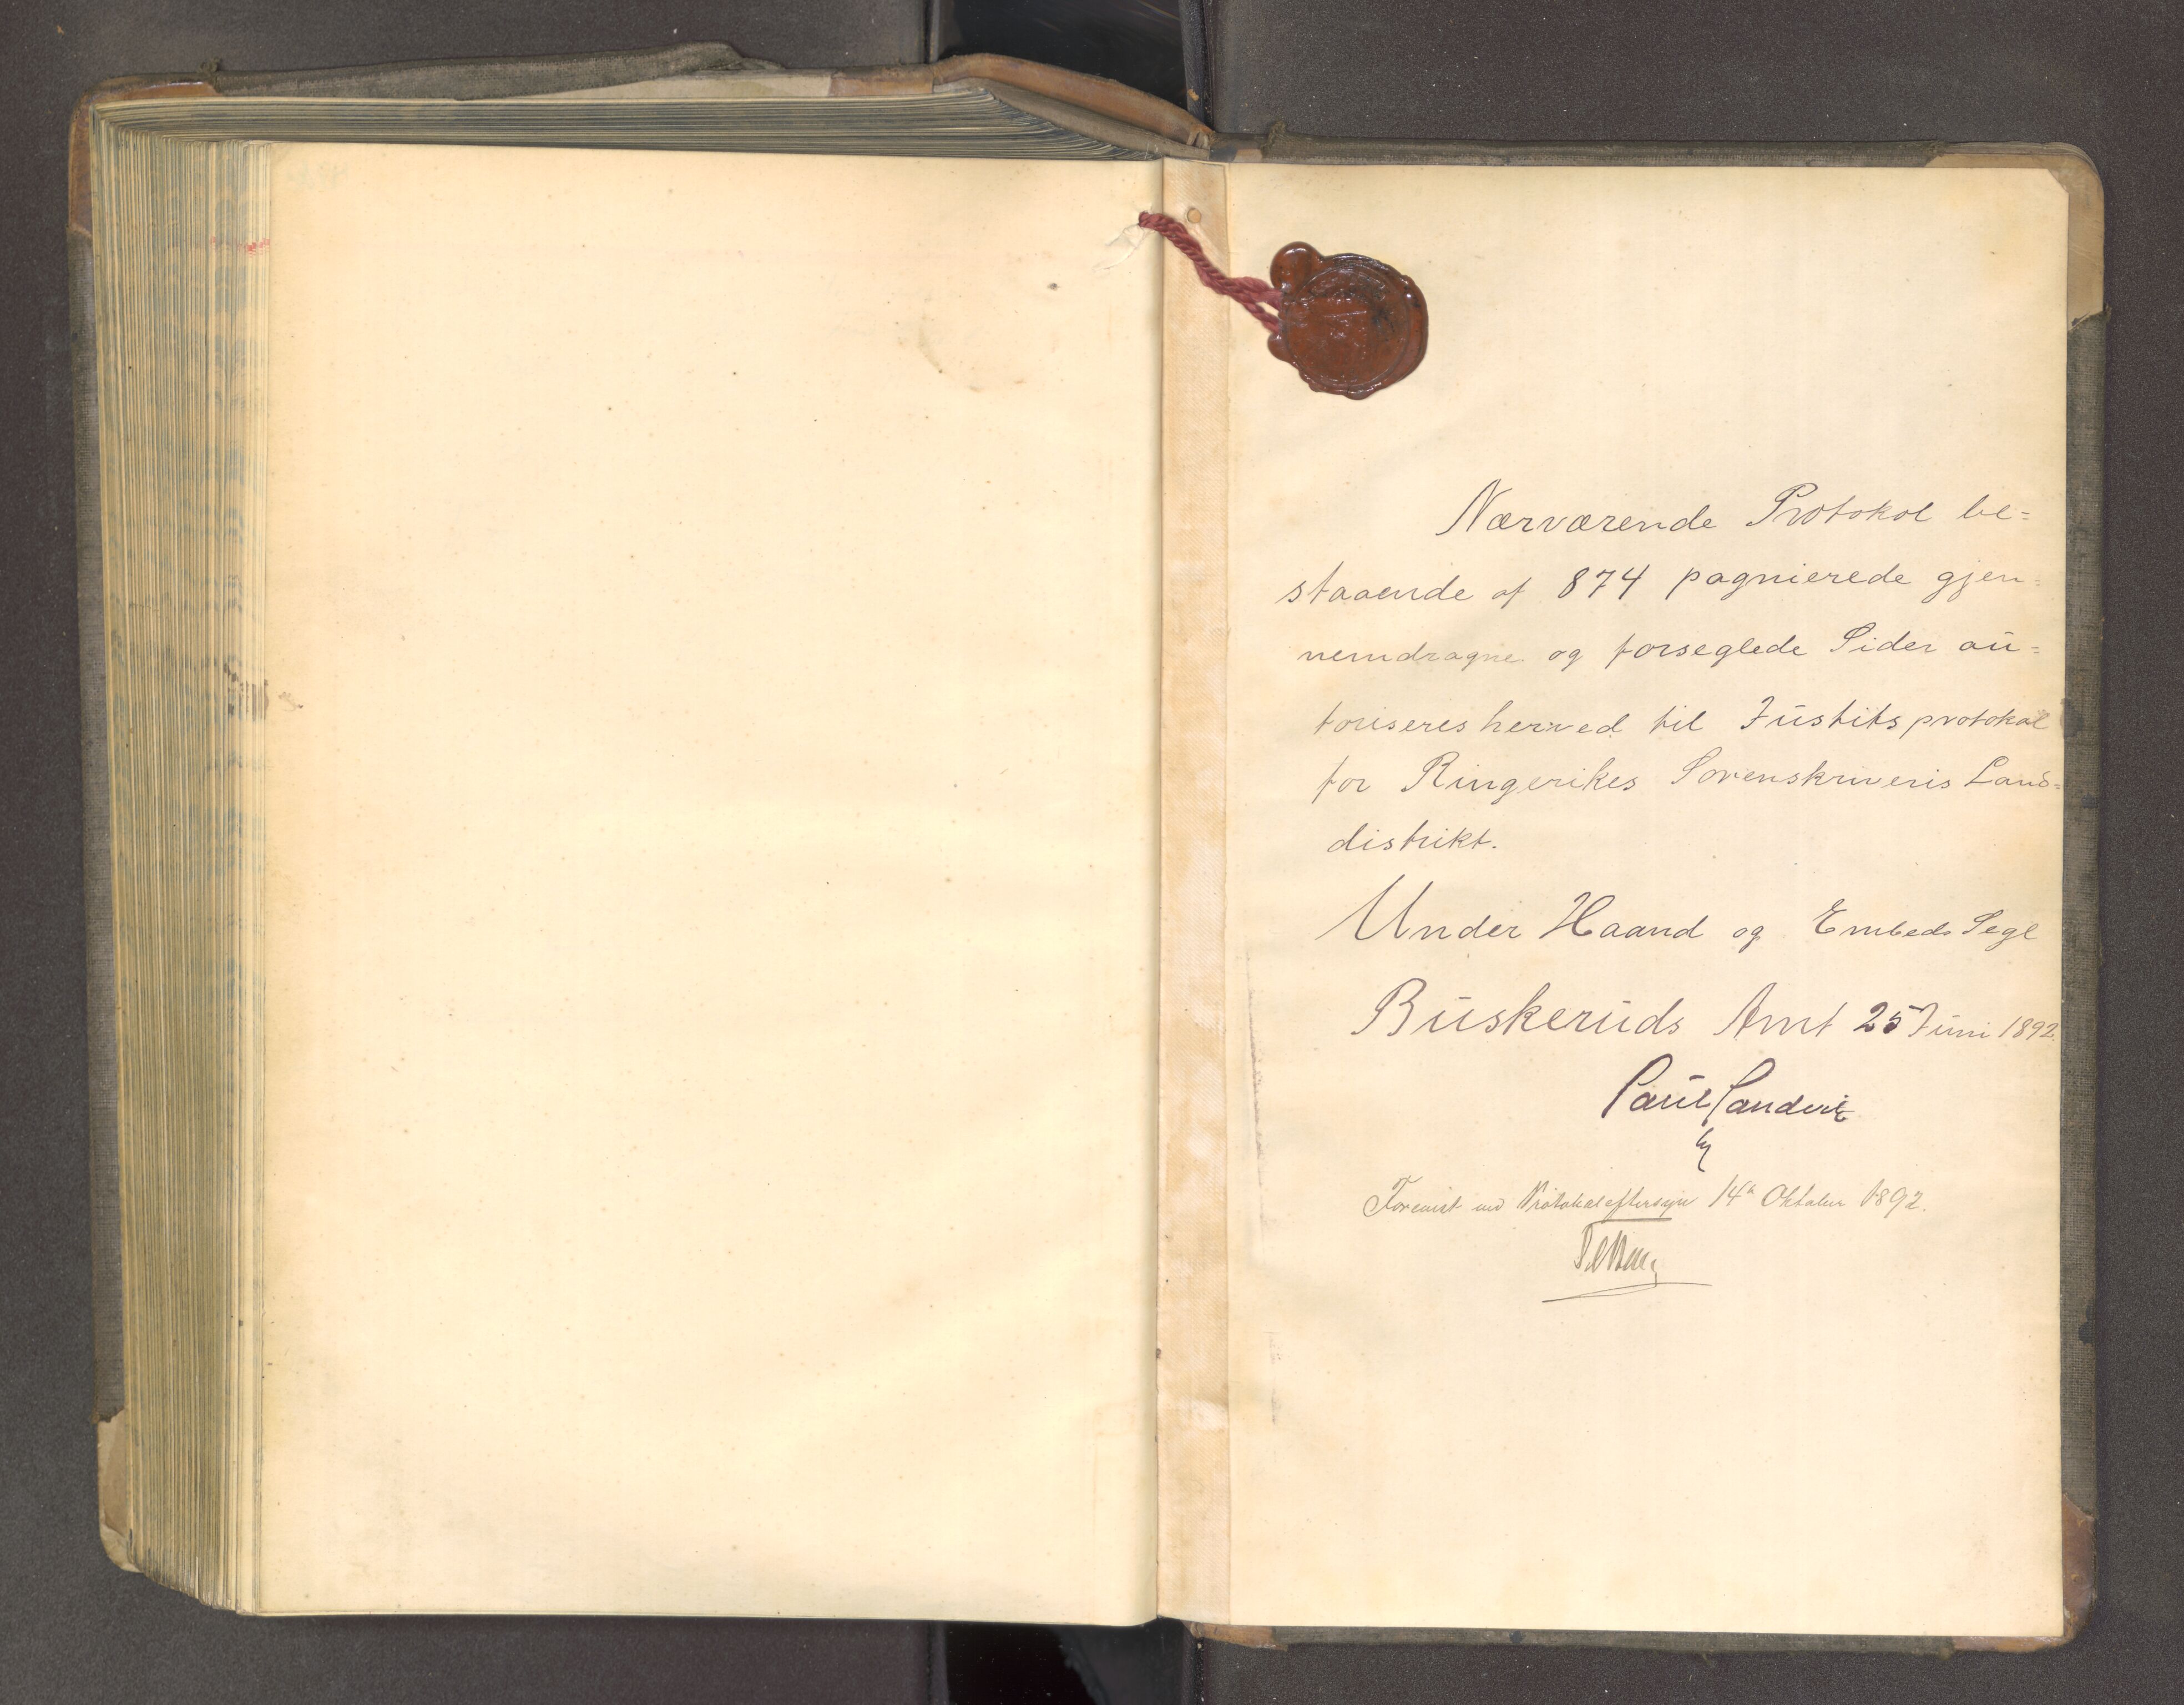 Nærværende Protokol be=
staaende af 874 pagnierede gjen=
nemdragne og forseglede Sider au=
toriseres herved til Justitsprotokol
for Ringerikes Sorenskriveris Land=
distrikt.
Under Haand og Embeds Segl
Buskeruds Amt 25 Juni 1892.
Paul Sandvik
Forevist ved Protokoleftersyn 14de Oktober 1892.